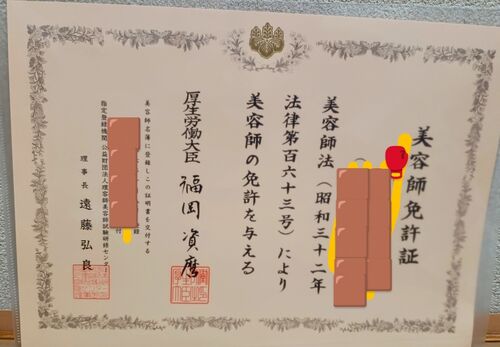 美容師免許証
美容師法（昭和三十二年
法律第百六十三号）により
美容師の免許を与える
厚生労働大臣 福岡資麿
美容師名簿に登録しこの証明書を交付する
録
付
指定登録機関 公益財団法人理容師美容師試験研修センター
理事長 遠藤弘良